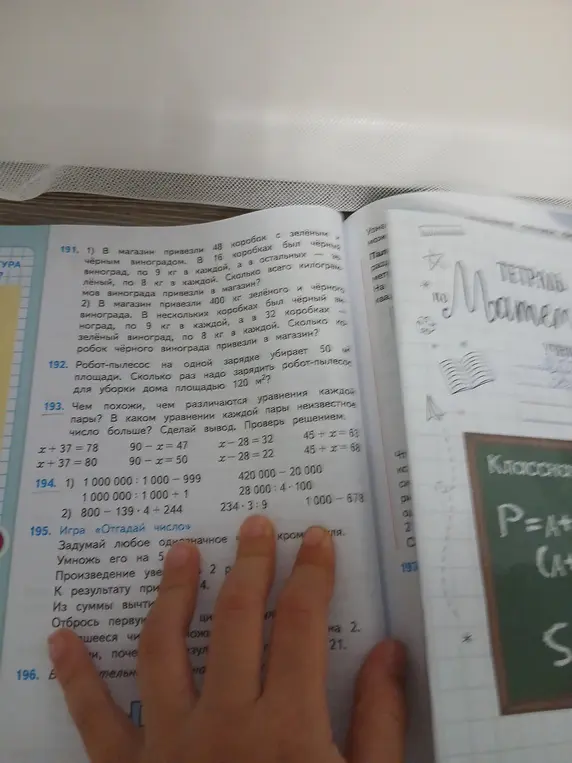 191. 1) В магазин привезли 48 коробок с зелёным и
чёрным виноградом. В 16 коробках был чёрный
виноград, по 9 кг в каждой, а в остальных —
лёный, по 8 кг в каждой. Сколько всего килограм-
мов винограда привезли в магазин?
2) В магазин привезли 400 кг зелёного и чёрного
винограда. В нескольких коробках был чёрный
ноград, по 9 кг в каждой, а в 32 коробках —
зелёный виноград, по 8 кг в каждой. Сколько ко-
робок чёрного винограда привезли в магазин?
192. Робот-пылесос на одной зарядке убирает 50
площади. Сколько раз надо зарядить робот-пылесос
для уборки дома площадью 120 м²?
193. Чем похожи, чем различаются уравнения каждой
пары? В каком уравнении каждой пары неизвестное
число больше? Сделай вывод. Проверь решением.
x + 37 = 78 90 − x = 47 x − 28 = 32 45 + x = 63
x + 37 = 80 90 − x = 50 x − 28 = 22 45 + x = 68
194. 1) 1 000 000 : 1 000 − 999 420 000 − 20 000
1 000 000 : 1 000 + 1 28 000 : 4 · 100
2) 800 − 139 · 4 + 244 234 · 3 : 9 1 000 − 678
195. Игра «Отгадай число»
Задумай любое однозначное кром
Умножь его на 5
Произведение 2
К результату 4.
Из суммы
Отбрось
на 2.
21.
196.
ТЕТРАДЬ
по
Матем
Классная
P = a +
(a +
S
197